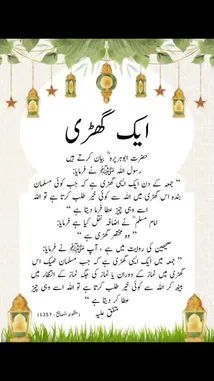 ایک گھڑی
حضرت ابوہریرہؓ بیان کرتے ہیں
رسول اللہ ﷺ نے فرمایا:
” جمعہ کے دن ایک ایسی گھڑی ہے کہ جب کوئی مسلمان
بندہ اس گھڑی میں اللہ سے کوئی خیر طلب کرتا ہے تو اللہ
اسے وہی چیز عطا فرما دیتا ہے “
امام مسلمؒ نے اضافہ نقل کیا ہے فرمایا:
” وہ مختصر گھڑی ہے “
صحیحین کی روایت میں ہے ، آپ ﷺ نے فرمایا:
” جمعہ میں ایک ایسی گھڑی ہے کہ جب مسلمان ٹھیک اس
گھڑی میں نماز کے دوران یا نماز کی جگہ نماز کے انتظار میں
بیٹھ کر اللہ سے کوئی خیر طلب کرتا ہے تو اللہ اسے وہی چیز
عطا کر دیتا ہے “
متفق علیہ
(مشکوٰۃ المصابیح : 1357)